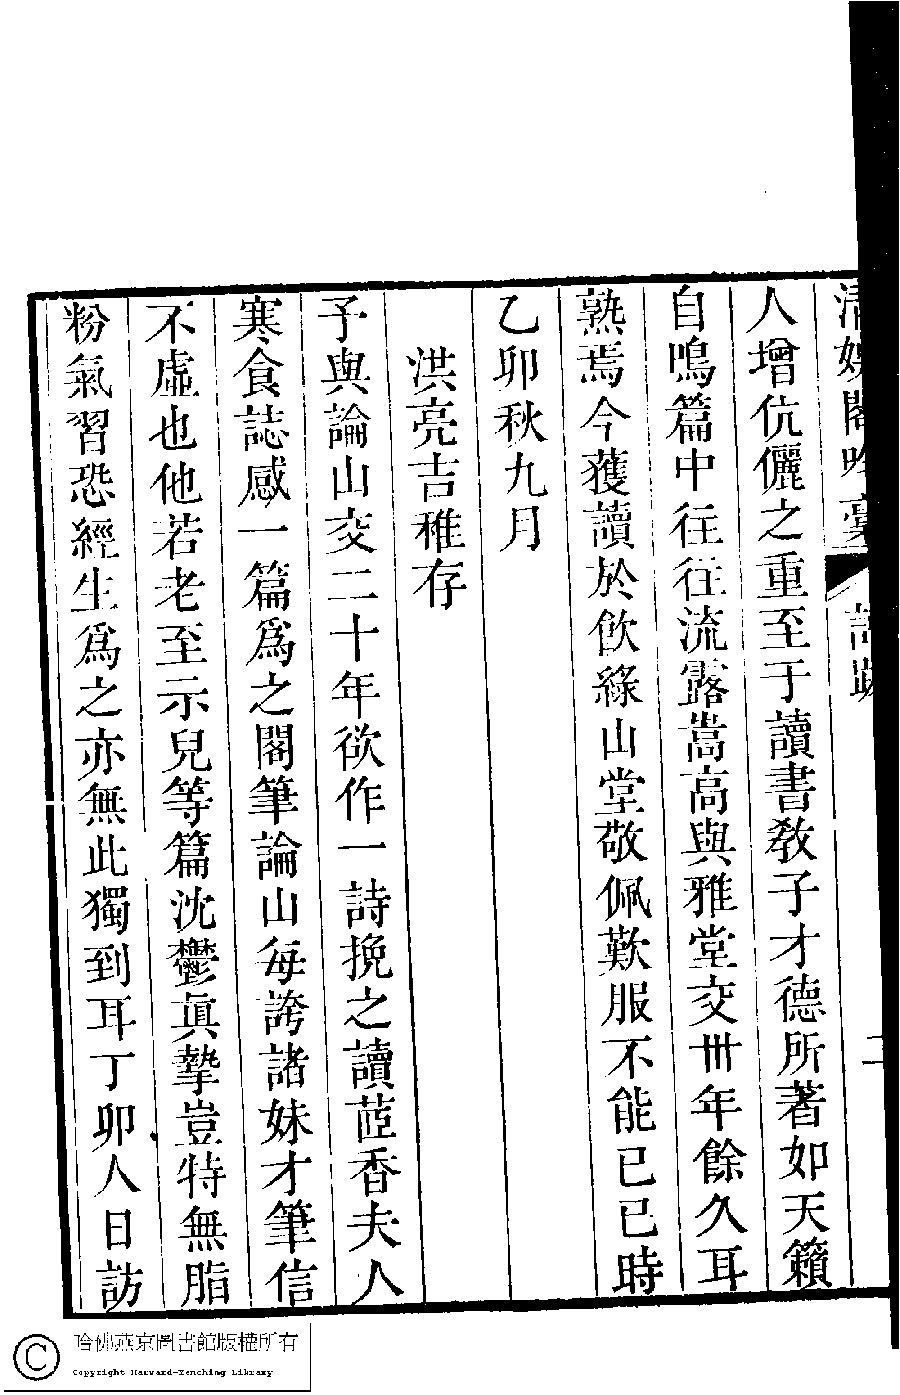 清娛閣吟藁
人增伉儷之重至于讀書敎子才德所著如天籟
自鳴篇中往往流露嵩高與雅堂交卌年餘久耳
熟焉今獲讀於飮綠山堂敬佩歎服不能已已時
乙卯秋九月
洪亮吉稚存
予與論山交二十年欲作一詩挽之讀茝香夫人
寒食誌感一篇爲之閣筆論山每誇諸妹才筆信
不虛也他若老至示兒等篇沈鬱眞摯豈特無脂
粉氣習恐經生爲之亦無此獨到耳丁卯人日訪
哈佛燕京圖書館版權所有
Copyright Harvard-Yenching Library